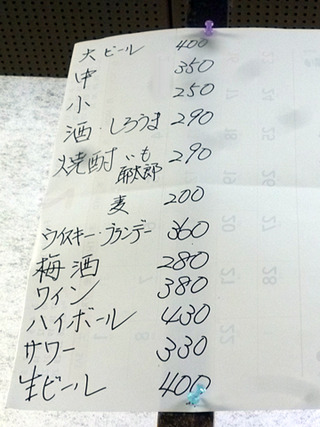 大ビール 400
中 350
小 250
酒・しろうま 290
焼酎 いも 290
麦 200
ウイスキー・ブランデー 360
梅酒 280
ワイン 380
ハイボール 430
サワー 330
生ビール 400